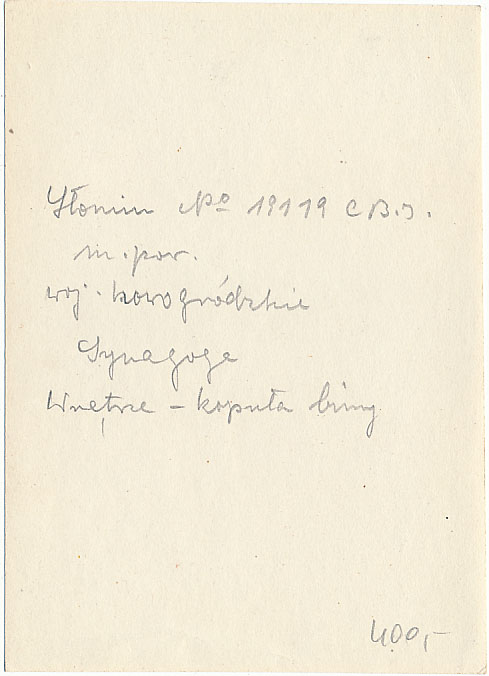 Słonim No 19119 C.B.I.
m. pow.
woj. nowogródzkie
Synagoga
Wnętrze – kopuła bimy
400,-